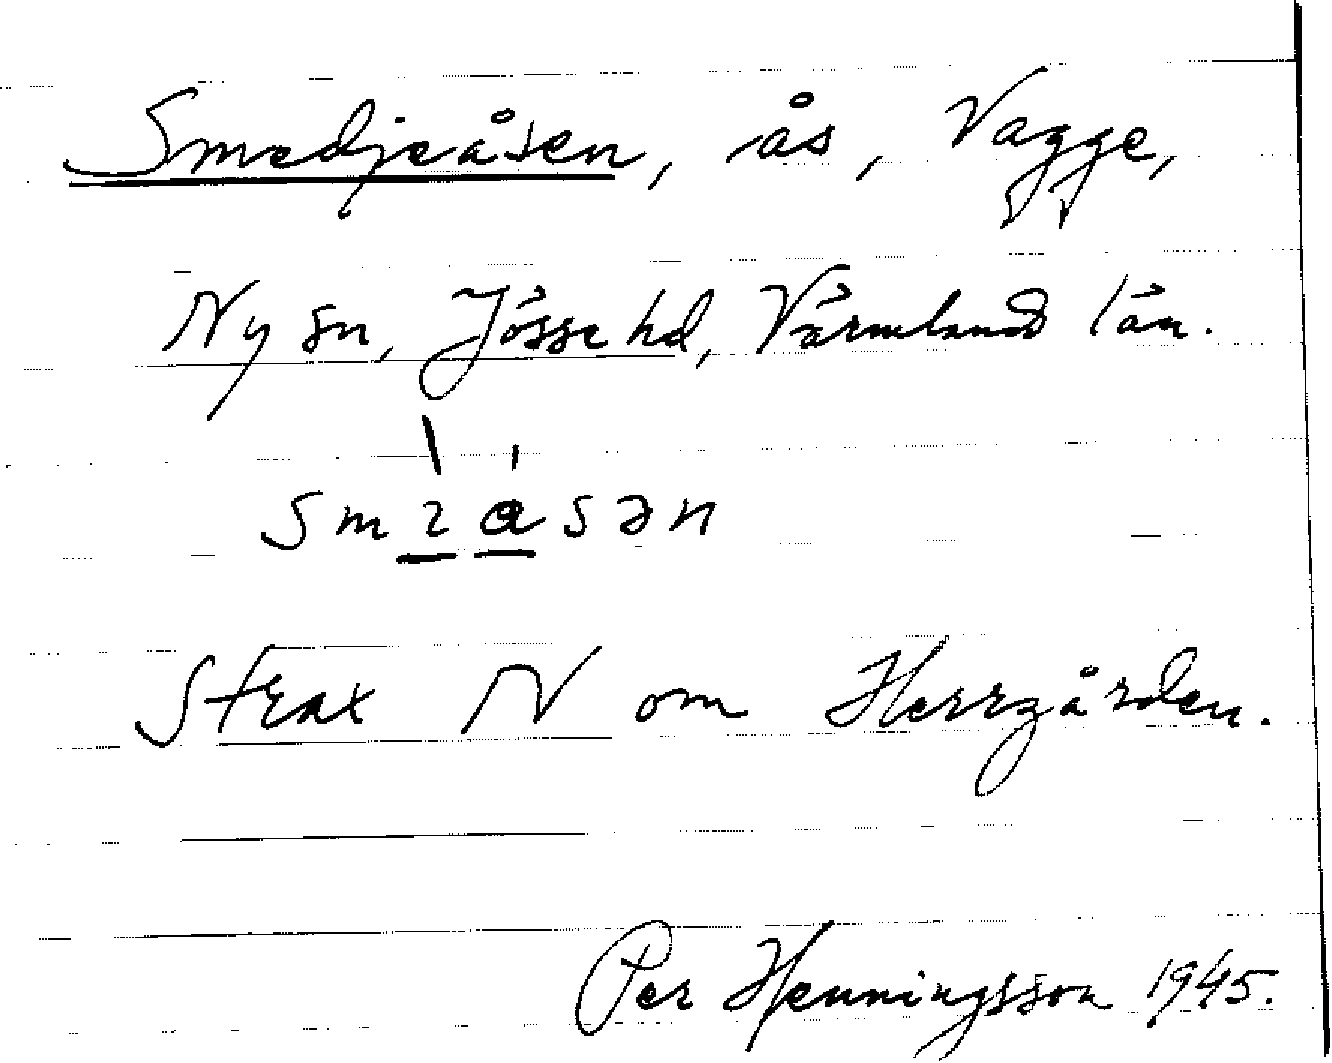 Smedjeåsen, ås, Vagge,
Ny sn, Jösse hd, Värmlands län.
smɩ̀ɑ́sən
Strax N om Herrgården.
Per Henningsson 1945.